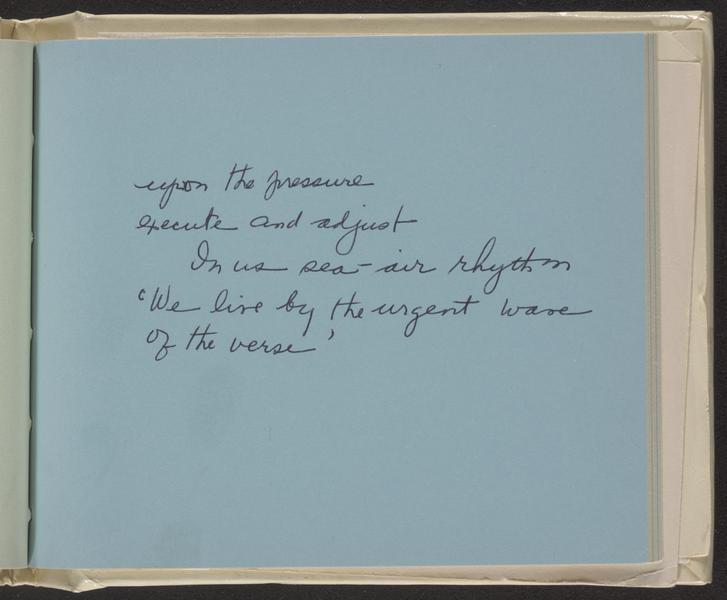 upon the pressure
execute and adjust
In us sea-air rhythm
'We live by the urgent wave
of the verse'